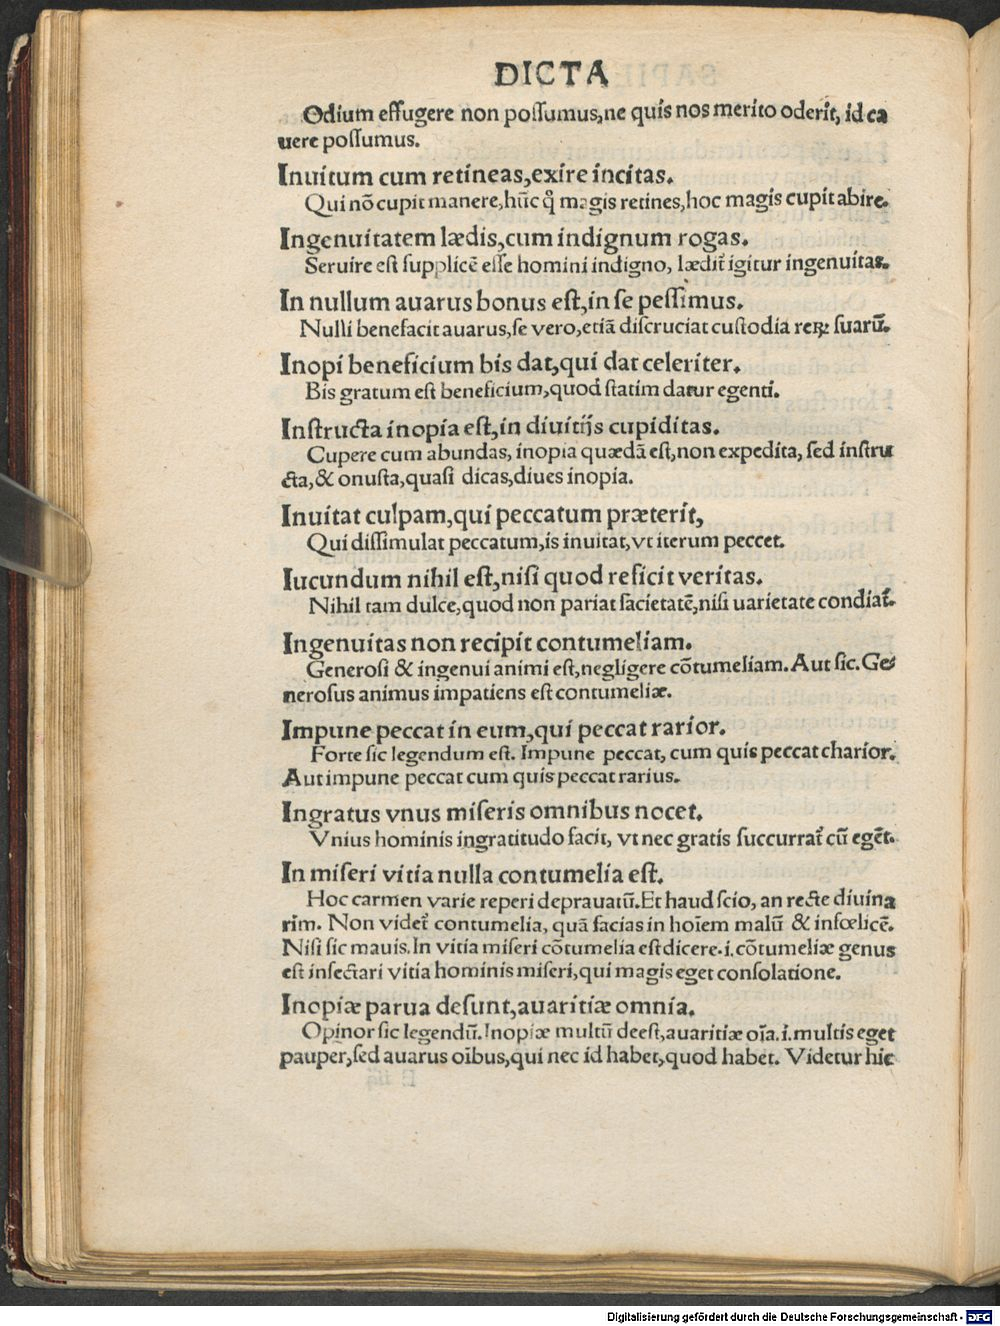 DICTA
Odium effugere non poſſumus,ne quis nos merito oderit, id ca
uere poſſumus.
Inuitum cum retineas,exire incitas.
Qui nõ cupit manere,hũc q̊ magis retines,hoc magis cupit abire.
Ingenuitatem lædis,cum indignum rogas.
Seruire eſt ſupplicẽ eſſe homini indigno, lædit᷑ igitur ingenuitas.
In nullum auarus bonus eſt,in ſe peſſimus.
Nulli benefacit auarus,ſe vero,etiã diſcruciat cuſtodia reꝝ ſuarũ.
Inopi beneficium bis dat,qui dat celeriter.
Bis gratum eſt beneficium,quod ſtatim datur egenti.
Inſtructa inopia eſt,in diuitijs cupiditas.
Cupere cum abundas, inopia quædã eſt,non expedita, ſed inſtru
cta,& onuſta,quaſi dicas,diues inopia.
Inuitat culpam,qui peccatum præterit,
Qui diſſimulat peccatum,is inuitat,vt iterum peccet.
Iucundum nihil eſt,niſi quod reficit veritas.
Nihil tam dulce,quod non pariat ſacietatẽ,niſi uarietate condiat᷑.
Ingenuitas non recipit contumeliam.
Generoſi & ingenui animi eſt,negligere cõtumeliam. Aut ſic. Ge⸗
neroſus animus impatiens eſt contumeliæ.
Impune peccat in eum,qui peccat rarior.
Forte ſic legendum eſt. Impune peccat, cum quis peccat charior.
Aut impune peccat cum quis peccat rarius.
Ingratus vnus miſeris omnibus nocet.
Vnius hominis ingratitudo facit, vt nec gratis ſuccurrat᷑ cũ eget᷑.
In miſeri vitia nulla contumelia eſt.
Hoc carmen varie reperi deprauatũ.Et haud ſcio, an recte diuina
rim. Non videt᷑ contumelia, quã facias in hoĩem malũ & infœlicẽ.
Niſi ſic mauis.In vitia miſeri cõtumelia eſt dicere.i.cõtumeliæ genus
eſt inſectari vitia hominis miſeri,qui magis eget conſolatione.
Inopiæ parua deſunt,auaritiæ omnia.
Opinor ſic legendũ.Inopiæ multũ deeſt,auaritiæ oĩa.i.multis eget
pauper,ſed auarus oĩbus,qui nec id habet,quod habet. Videtur hic
Digitalisierung gefördert durch die Deutsche Forschungsgemeinschaft - DFG